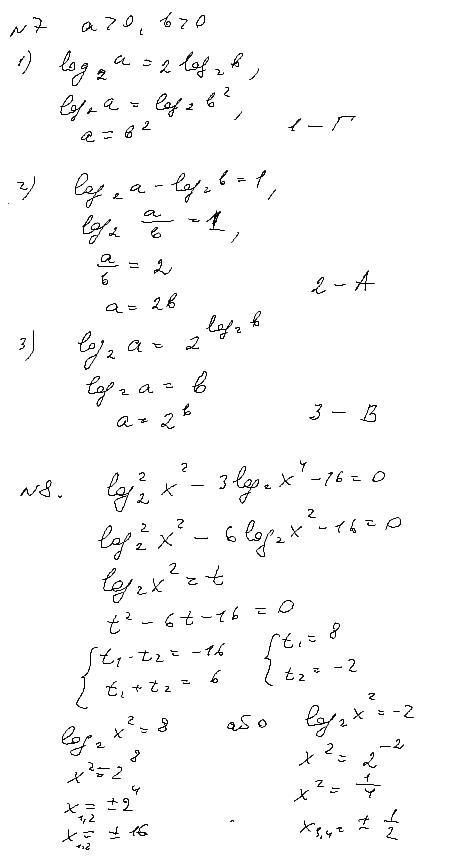 №7 a>0, b>0
1) log₂ a = 2 log₂ b,
log₂ a = log₂ b²,
a = b² 1 – Г
2) log₂ a – log₂ b = 1,
log₂ a/b = 1,
a/b = 2
a = 2b 2 – А
3) log₂ a = 2^(log₂ b)
log₂ a = b
a = 2^b 3 – В
№8. log₂² x² – 3 log₂ x⁴ – 16 = 0
log₂² x² – 6 log₂ x² – 16 = 0
log₂ x² = t
t² – 6t – 16 = 0
{ t₁ · t₂ = –16 { t₁ = 8
t₁ + t₂ = 6 t₂ = –2
log₂ x² = 8 або log₂ x² = –2
x² = 2⁸ x² = 2⁻²
x₁,₂ = ±2⁴ x² = 1/4
x₁,₂ = ± 16 x₃,₄ = ± 1/2